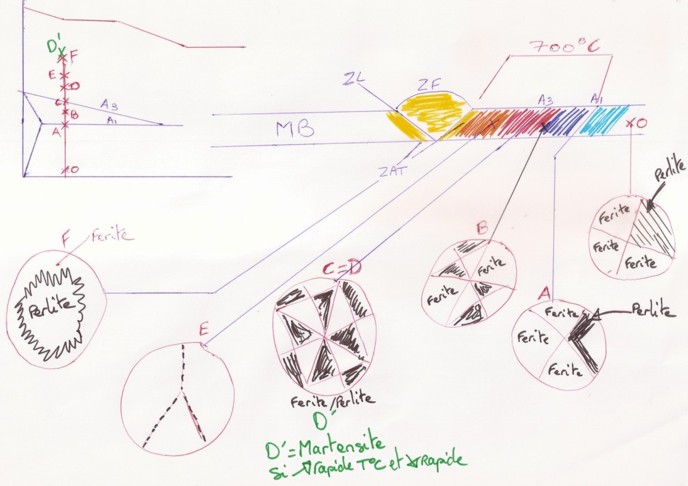 D'
F
E
D
C
B
A
A3
A1
O
700°C
ZL
ZF
MB
A3
A1
O
ZAT
Perlite
Ferite
Ferite
Ferite
B
Ferite
Ferite
A
Ferite
Perlite
Ferite
Ferite
F
Ferite
Perlite
E
C=D
Ferite/Perlite
D'
D'=Martensite
Si rapide T°C et Rapide